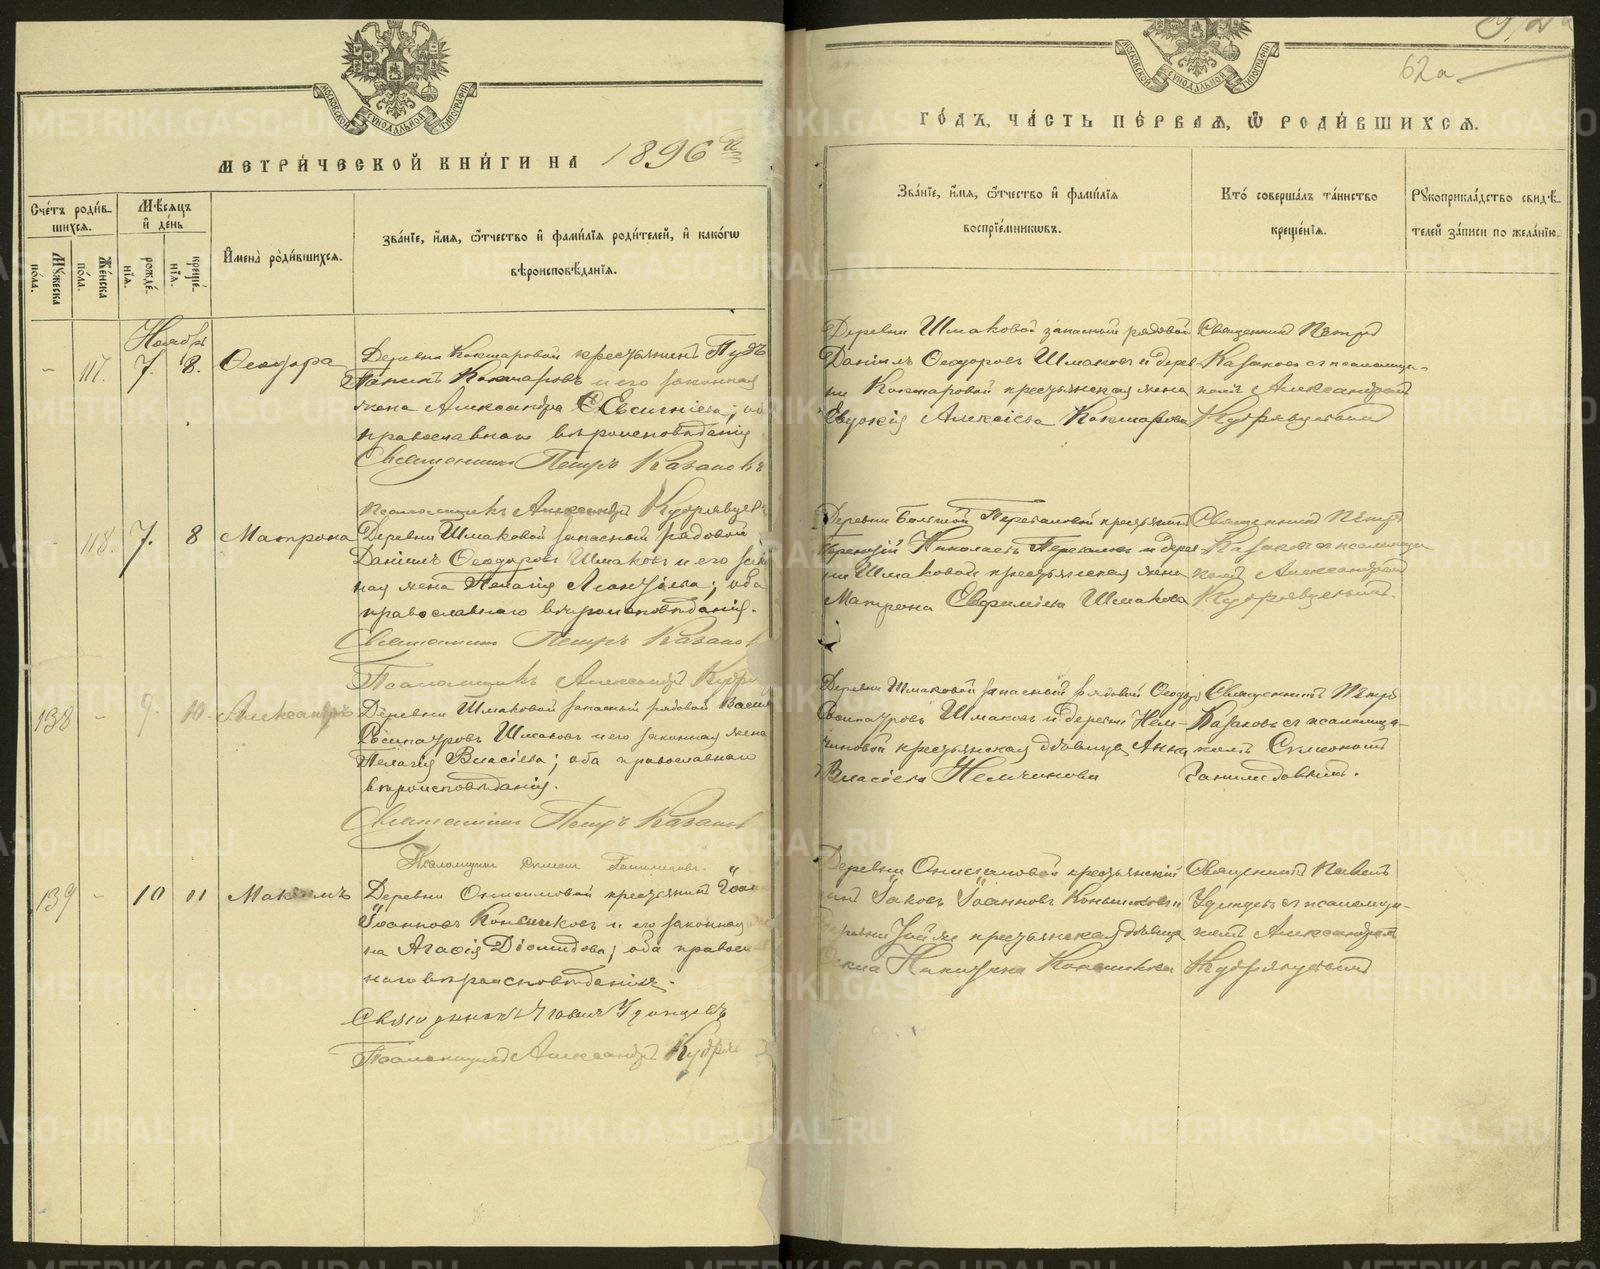 МОСКОВСКОЙ СѴНОДАЛЬНОЙ ТИПОГРАФІИ
МЕТРИ́ЧЕСКОЙ КНИ́ГИ НА 1896 й
Сче́тъ роди́вшихся.
Мѣ́сяцъ и҆ де́нь
И҆мена̀ роди́вшихся.
Зва́нїе, и҆́мя, ѻ҆́тчество и҆ фами́лїя роди́телей, и҆ како́гѡ
вѣроисповѣ́данїя.
Мꙋ́жеска по́ла.
Же́нска по́ла.
рожде́нїя.
креще́нїя.
Ноябрь
- 117. 7. 8. Ѳеодора
Деревни Кокшаровой крестьянинъ
Кокшаровъ и его законная
жена Александра Евсигніева; об
православнаго вѣроисповѣданія
Священникъ Петръ Казаковъ
Псаломщикъ Александръ Кудрявцев
- 118. 7. 8 Матрона
Деревни Шмаковой запасный рядовой
Даніилъ Ѳеодоровъ Шмаковъ и его зако
ная жена Пелагія Леонтіева; оба
православнаго вѣроисповѣданія.
Священникъ Петръ Казаков
Псаломщикъ Александръ Кудря
138 - 9. 10. Александръ
Деревни Шмаковой запасный рядовой Васил
Шмаковъ и его законная жена
Пелагія Власіева; оба православнаго
вѣроисповѣданія.
Священникъ Петръ Казаков
Псаломщикъ Симеон
139 - 10 11 Максимъ
Деревни Онисимовой крестьянинъ Іоан
Іоанновъ Коньшиковъ и его законная
на Агаѳія Діомидова; оба правосл
наго вѣроисповѣданія.
Священникъ Павелъ Удинцевъ
Псаломщикъ Александръ Кудряв
МОСКОВСКОЙ СѴНОДАЛЬНОЙ ТИПОГРАФІИ
62а
ГО́ДЪ, ЧА́СТЬ ПЕ́РВАЯ, Ѽ РОДИ́ВШИХСЯ.
Зва́нїе, и҆́мя, ѻ҆́тчество и҆ фами́лїя
воспрїе́мникѡвъ.
Кто̀ соверша́лъ та́инство
креще́нїя.
Рꙋкоприкла́дство свидѣ́-
телей за́писи по жела́нїю.
Деревни Шмаковой запасный рядовой
Даніилъ Ѳеодоровъ Шмаковъ и дерев-
ни Кокшаровой крестьянская жена
Евдокія Алексіева Кокшарова
Священникъ Петръ
Казаковъ съ псаломщи-
комъ Александромъ
Кудрявцевымъ
Деревни Большой Переваловой крестьянинъ
Николаевъ Переваловъ и дерев
ни Шмаковой крестьянская жена
Матрона Евфиміева Шмакова
Священникъ Петръ
Казаковъ съ псаломщи
комъ Александромъ
Кудрявцевымъ.
Деревни Шмаковой запасный рядовой Ѳеодоръ
Шмаковъ и деревни Нем-
чиновой крестьянская дѣвица Анна
Власіева Немчинова
Священникъ Петръ
Казаковъ съ псаломщи-
комъ Симеономъ
Деревни Онисимовой крестьянскій
Іаковъ Іоанновъ Коньшиковъ и
крестьянская дѣвица
Никитина
Священникъ Павелъ
Удинцевъ съ псаломщи-
комъ Александромъ
Кудрявцевымъ
METRIKI.GASO-URAL.RU